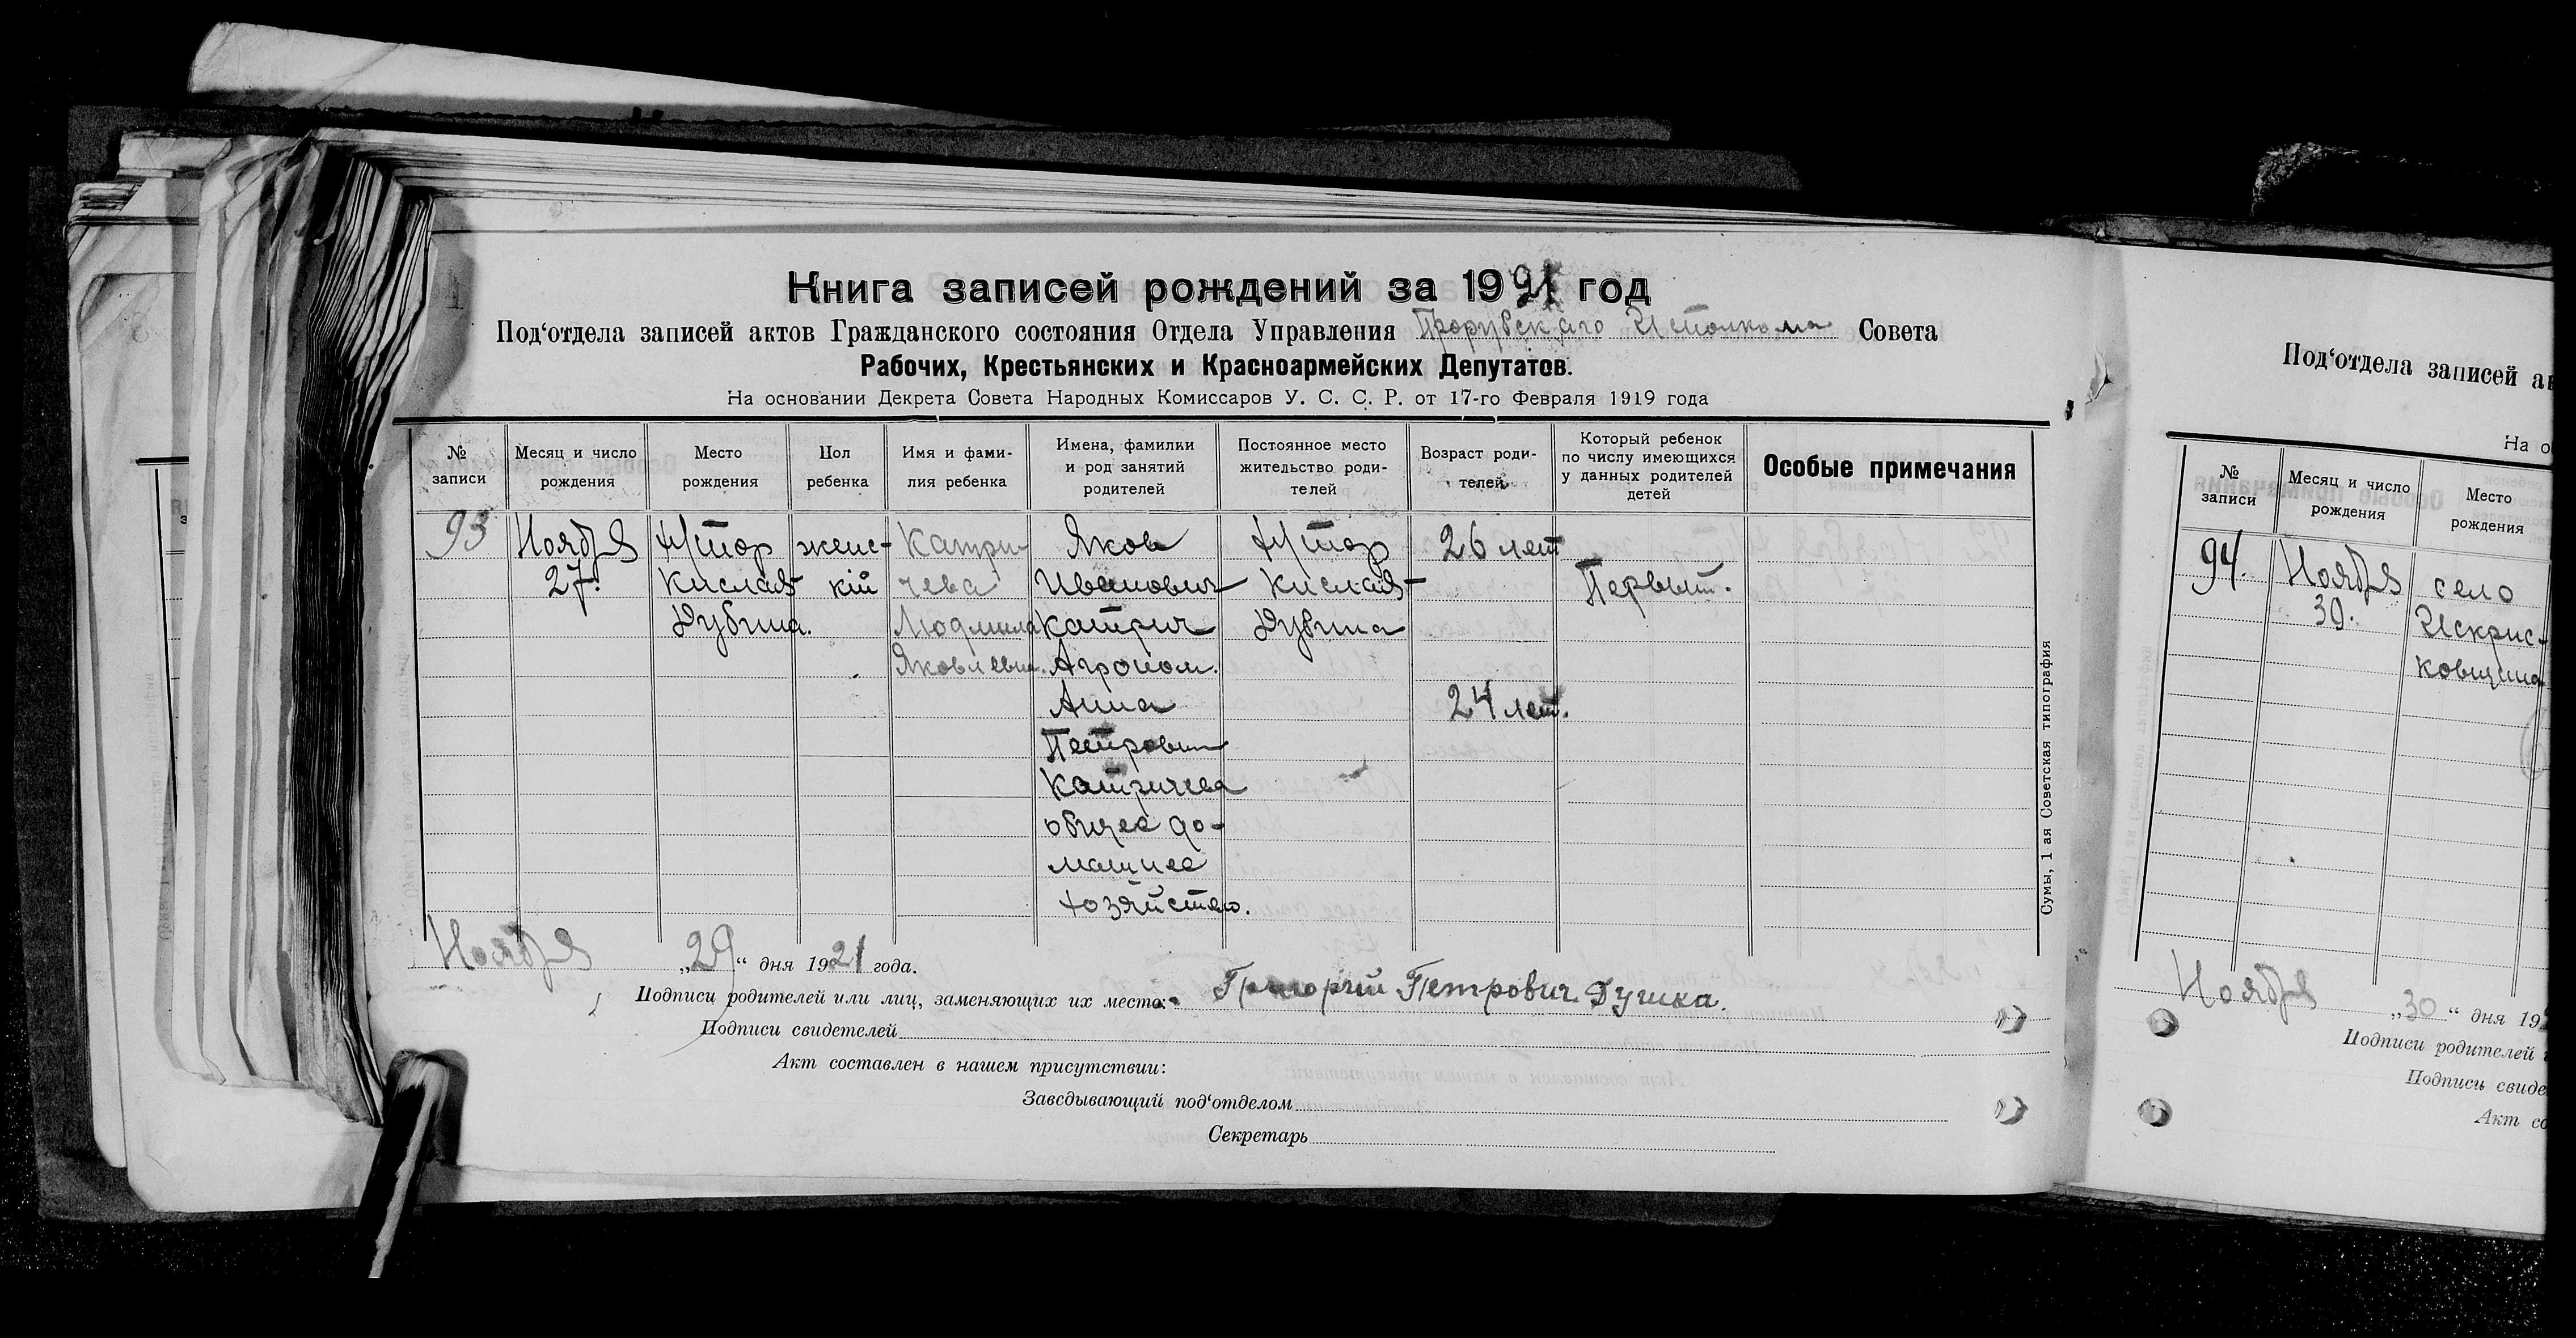 Книга записей рождений за 1921 год
Под‘отдела записей актов Гражданского состояния Отдела Управления Прорубскаго Исполкома Совета
Рабочих, Крестьянских и Красноармейских Депутатов.
На основании Декрета Совета Народных Комиссаров У. С. С. Р. от 17-го Февраля 1919 года
№ записи
Месяц и число рождения
Место рождения
Пол ребенка
Имя и фами-
лия ребенка
Имена, фамилии
и род занятий
родителей
Постоянное место
жительство роди-
телей
Возраст роди-
телей
Который ребенок
по числу имеющихся
у данных родителей
детей
Особые примечания
93
Ноября
27.
Хутор
Кислая-
Дубина.
женс-
кій
Катри
чева
Людмила
Яковлевна.
Яков
Иванович
Катрич
Агроном.
Анна
Петровна
Катричева
общее до-
машнее
хозяйство.
Хутор
Кислая-
Дубина
26 лет
24 лет.
Первый.
Ноября „29“ дня 1921 года.
Подписи родителей или лиц, заменяющих их место: Григорий Петрович Душка.
Подписи свидетелей
Акт составлен в нашем присутствии:
Заведывающий под‘отделом
Секретарь
Сумы, 1 ая Советская типография
Под‘отдела записей ак
На о
№ записи
Месяц и число рождения
Место рождения
94.
Ноября
30.
село
Искрис-
ковщина
Ноября „30“ дня 19
Подписи родителей
Подписи свиде
Акт со